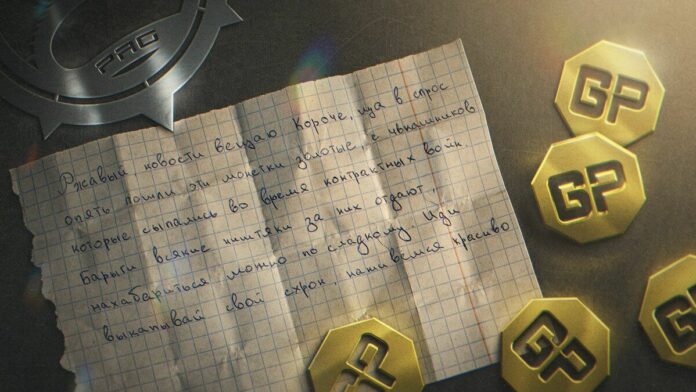 PRO
Ржавый новости вещаю Короче, ща в спрос
опять пошли эти монетки золотые, с чвкашников
которые сыпались во время контрактных войн.
Барыги всякие ништяки за них отдают,
нахабариться можно по сладкому Иди
выкапывай свой схрон, наживёмся красиво
GP
GP
GP
GP
GP